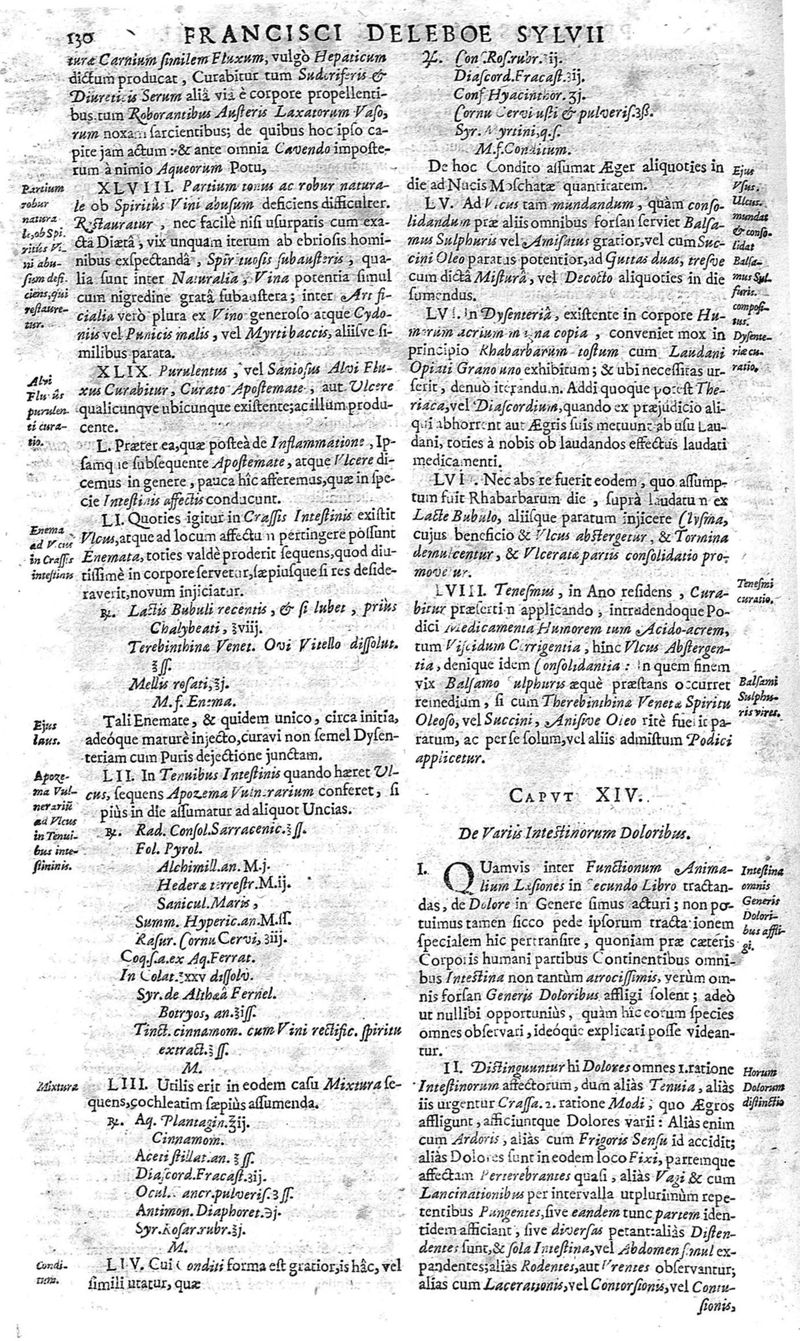 130 FRANCISCI DELEBOE SYLVII
turæ Carnium similem Fluxum, vulgò Hepaticum
dictum producat, Curabitur tum Sudoriferis &
Diureticis Serum aliâ viâ è corpore propellenti-
bus, tum Roborantibus Austeris Laxatorum Vaso-
rum noxam sarcientibus; de quibus hoc ipso ca-
pite jam actum: & ante omnia Cavendo imposte-
rum à nimio Aqueorum Potu,
Partium
robur
natura
le, ob Spi-
ritûs Vi-
ni abu-
sum defi-
ciens, qui
restaure-
tur.
XLVIII. Partium tonus ac robur natura-
le ob Spiritûs Vini abusum deficiens difficulter.
Restauratur, nec facilè nisi usurpatis cum exa-
ctâ Diætâ, vix unquam iterum ab ebriosis homi-
nibus exspectandâ, Spirituosis subausteris, qua-
lia sunt inter Naturalia, Vina potentia simul
cum nigredine gratâ subaustera; inter Arti-
ficialia verò plura ex Vino generoso atque Cydo-
niis vel Punicis malis, vel Myrti baccis, aliisve si-
milibus parata.
Alvi
Fluxûs
purulen-
ti cura-
tio.
XLIX. Purulentus, vel Saniosus Alvi Flu-
xus Curabitur, Curato Apostemate, aut Ulcere
qualicunque ubicunque existente; ac illum produ-
cente.
L. Præter ea, quæ posteà de Inflammatione, Ip-
samque subsequente Apostemate, atque Ulcere di-
cemus in genere, pauca hîc afferemus, quæ in spe-
cie Intestinis affectis conducunt.
Enema
ad Vlcus
in Crassis
intestinis
LI. Quoties igitur in Crassis Intestinis existit
Vlcus, atque ad locum affectum pertingere possunt
Enemata, toties valdè proderit sequens, quod diu-
tissimè in corpore servetur, sæpiusque si res deside-
raverit, novum injiciatur.
℞. Lactis Bubuli recentis, & si lubet, priùs
Chalybeati, ℥viij.
Terebinthinæ Venet. Ovi Vitello dissolut.
℥ss.
Mellis rosati, ℥j.
M. f. Enema.
Ejus
laus.
Tali Enemate, & quidem unico, circa initia,
adeóque maturè injecto, curavi non semel Dysen-
teriam cum Puris dejectione junctam.
Apoze-
ma Vul-
nerariũ
ad Vlcus
in Tenui-
bus inte-
stininis.
LII. In Tenuibus Intestinis quando hæret Ul-
cus, sequens Apozema Vulnerarium conferet, si
piùs in die assumatur ad aliquot Uncias.
℞. Rad. Consol. Sarracenic. ℥ss.
Fol. Pyrol.
Alchimill. an. M.j.
Hederæ terrestr. M.ij.
Sanicul. Maris,
Summ. Hyperic. an. M.ss.
Rasur. Cornu Cervi, ʒiij.
Coq. s. a. ex Aq. Ferrat.
In Colat. ℥xxv dissolv.
Syr. de Althæâ Fernel.
Botryos, an. ℥iss.
Tinct. cinnamom. cum Vini rectific. spiritu
extract. ℥ss.
M.
Mixtura
LIII. Utilis erit in eodem casu Mixtura se-
quens, cochleatim sæpiùs assumenda.
℞. Aq. Plantagin. ℥ij.
Cinnamom.
Aceti stillat. an. ℥ss.
Diascord. Fracast. ʒij.
Ocul. cancr. pulveris. ʒss.
Antimon. Diaphoret. ℈j.
Syr. Rosar. rubr. ℥j.
M.
Condi-
tum.
LIV. Cui Conditi forma est gratior, is hâc, vel
simili utatur, quæ
℞. Con Ros. rubr. ʒij.
Diascord. Fracast. ʒij.
Conf. Hyacinthor. ʒj.
Cornu Cervi usti & pulveris. ʒß.
Syr. Myrtini, q. s.
M. f. Conditum.
Ejus
Usus.
De hoc Condito assumat Æger aliquoties in
die ad Nucis Moschatæ quantitatem.
Ulcus.
mundat
& conso-
lidat
Balsa-
mus Sul-
furis.
compisi-
tus.
LV. Ad Vlcus tam mundandum, quàm conso-
lidandum præ aliis omnibus forsan serviet Balsa-
mus Sulphuris vel Anisatus gratior, vel cum Suc-
cini Oleo paratus potentior, ad Guttas duas, tresve
cum dictâ Misturâ, vel Decocto aliquoties in die
sumendus.
Dysente-
riæ cu-
ratio.
LVI. In Dysenteriâ, existente in corpore Hu-
morum acrium magna copia, conveniet mox in
principio Rhabarbarum tostum cum Laudani
Opiati Grano uno exhibitum; & ubi necessitas ur-
serit, denuò iterandum. Addi quoque potest The-
riaca, vel Diascordium, quando ex præjudicio ali-
qui abhorrent aut Ægris suis metuunt ab usu Lau-
dani, toties à nobis ob laudandos effectus laudati
medicamenti.
LVII. Nec abs re fuerit eodem, quo assump-
tum fuit Rhabarbarum die, suprà laudatum ex
Lacte Bubulo, aliisque paratum injicere Clysma,
cujus beneficio & Vlcus abstergetur, & Tormina
demulcentur, & Ulceratæ partis consolidatio pro-
movetur.
Tenesmi
curatio.
LVIII. Tenesmus, in Ano residens, Cura-
bitur præsertim applicando, intrudendoque Po-
dici Medicamenta Humorem tum Acido-acrem,
tum Viscidum Corrigentia, hinc Vlcus Abstergen-
tia, denique idem Consolidantia: In quem finem
Balsami
Sulphu-
ris vires.
vix Balsamo Sulphuris æquè præstans occurret
remedium, si cum Therebinthinæ Venetæ Spiritu
Oleoso, vel Succini, Anisive Oleo ritè fuerit pa-
ratum, ac per se solum, vel aliis admistum Podici
applicetur.
CAPVT XIV.
De Variis Intestinorum Doloribus.
Intestina
omnis
Generis
Dolori-
bus affli-
gi.
I. QUamvis inter Functionum Anima-
lium Læsiones in Secundo Libro tractan-
das, de Dolore in Genere simus acturi; non po-
tuimus tamen sicco pede ipsorum tractationem
specialem hic pertransire, quoniam præ cæteris
Corporis humani partibus Continentibus omni-
bus Intestina non tantùm atrocissimis, verùm om-
nis forsan Generis Doloribus affligi solent; adeò
ut nullibi opportuniùs, quàm hic eorum species
omnes observari, ideóque explicari posse videan-
tur.
Horum
Dolorum
distinctio
II. Distinguuntur hi Dolores omnes 1. ratione
Intestinorum affectorum, dum aliàs Tenuia, aliàs
iis urgentur Crassa. 2. ratione Modi, quo Ægros
affligunt, afficiuntque Dolores varii: Aliàs enim
cum Ardoris, aliàs cum Frigoris Sensu id accidit;
aliàs Dolores sunt in eodem loco Fixi, partemque
affectam Perterebrantes quasi, aliàs Vagi & cum
Lancinationibus per intervalla utplurimùm repe-
tentibus Pungentes, sive eandem tunc partem iden-
tidem afficiant, sive diversas petant: aliàs Disten-
dentes sunt, & sola Intestina, vel Abdomen simul ex-
pandentes; aliàs Rodentes, aut Vrentes observantur;
aliàs cum Lacerationis, vel Contorsionis, vel Contu-
sionis,